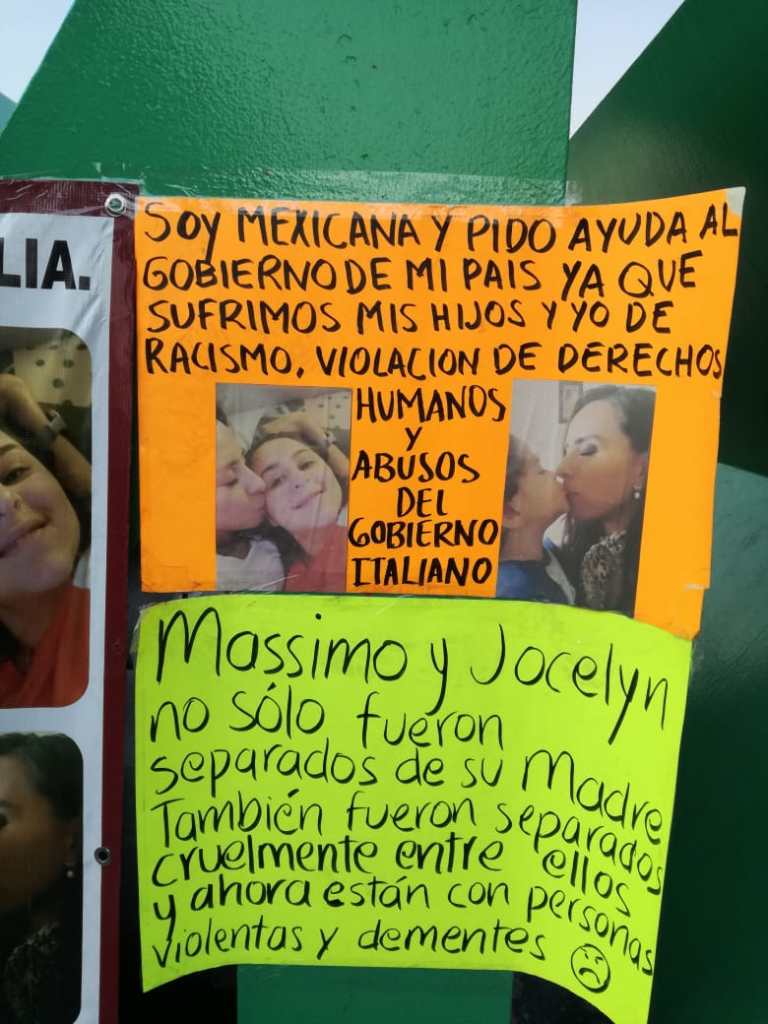 LIA.
SOY MEXICANA Y PIDO AYUDA AL
GOBIERNO DE MI PAIS YA QUE
SUFRIMOS MIS HIJOS Y YO DE
RACISMO, VIOLACION DE DERECHOS
HUMANOS
Y
ABUSOS
DEL
GOBIERNO
ITALIANO
Massimo y Jocelyn
no sólo fueron
separados de su Madre
También fueron separados
cruelmente entre ellos
y ahora están con personas
violentas y dementes